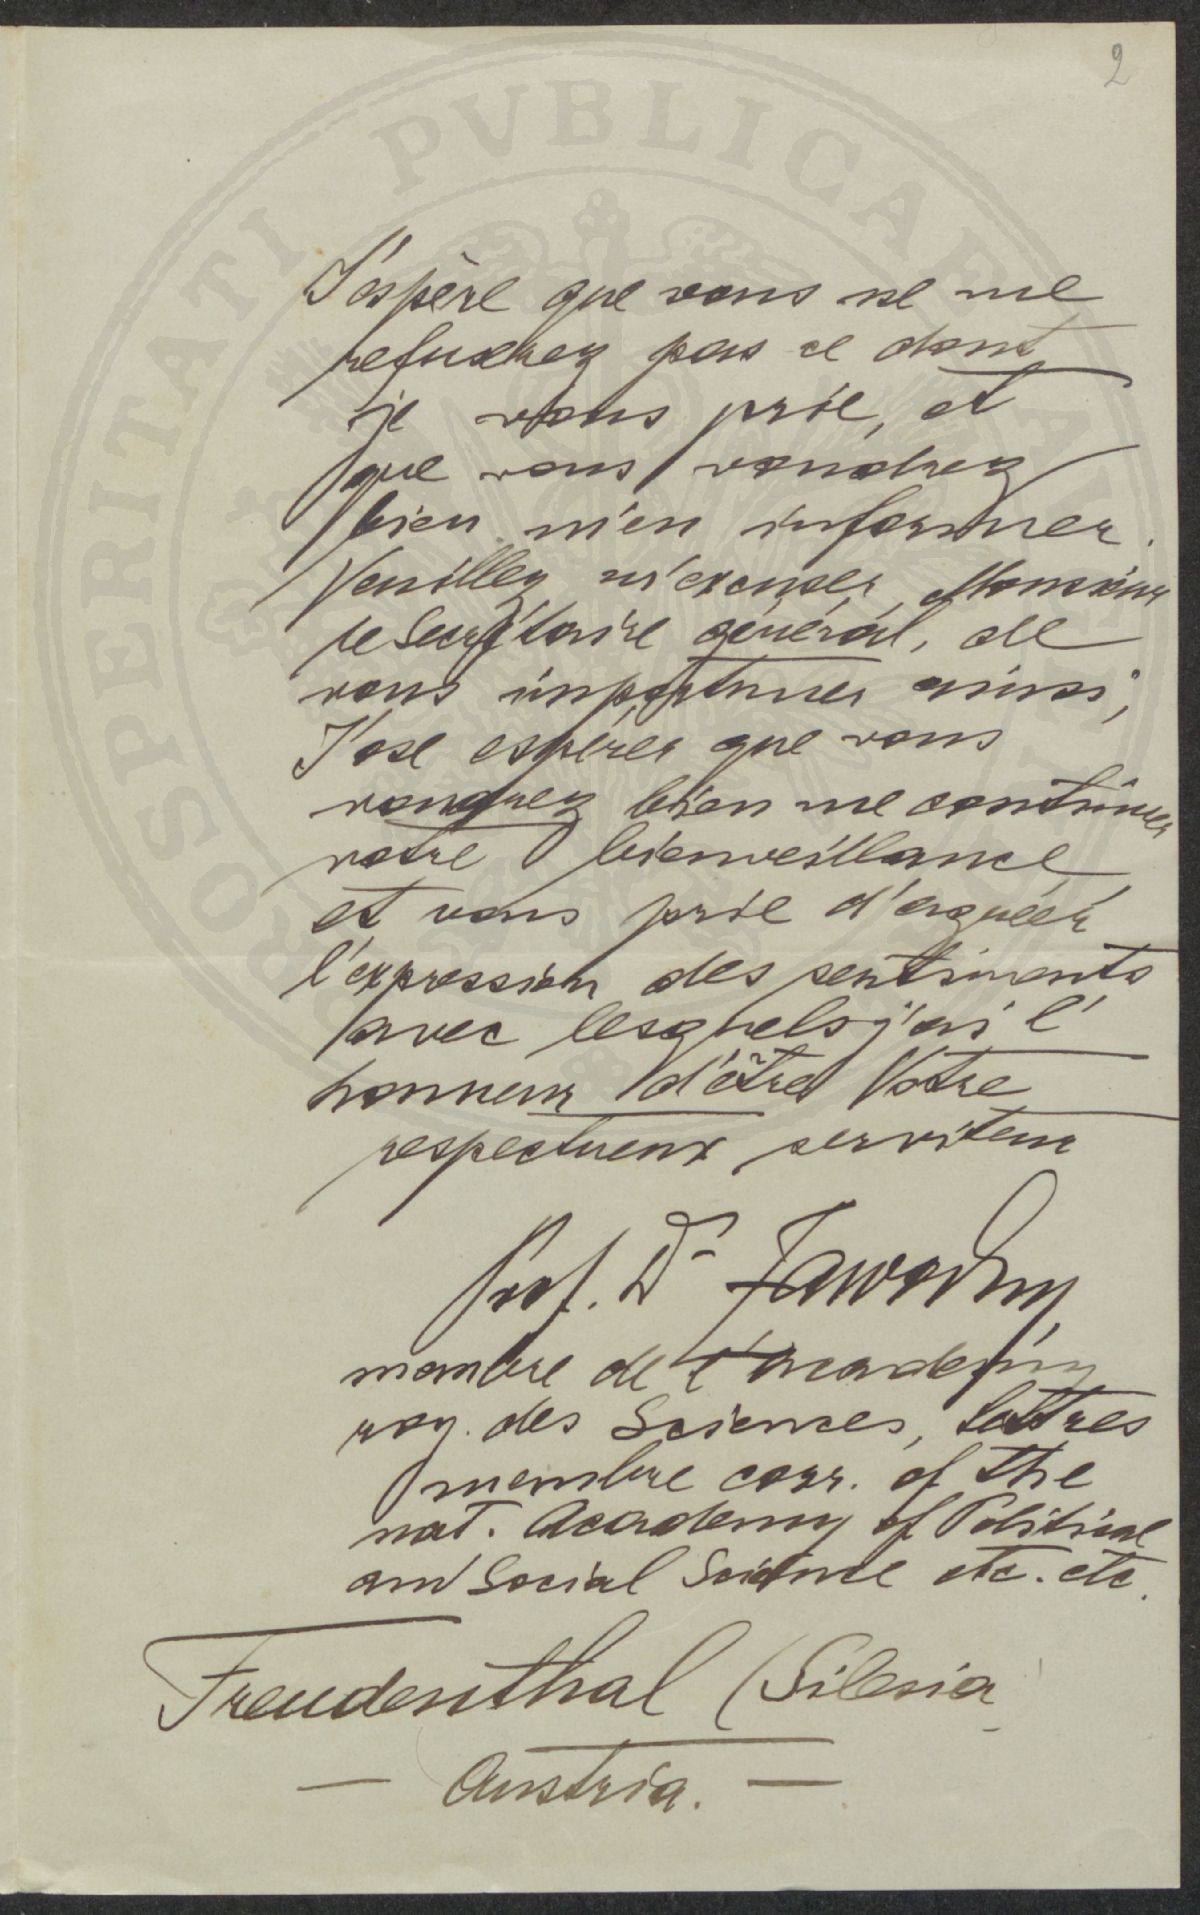 2
J'espère que vous ne me
refuserez pas ce dont
je vous prie, et
que vous voudrez
bien m'en informer.
Veuillez m'excuser, Monsieur
le Secrétaire général, de
vous importuner ainsi;
J'ose espérer que vous
voudrez bien me continuer
votre bienveillance
et vous prie d'agréer
l'expression des sentiments
avec lesquels j'ai l'
honneur d'être Votre
respectueux serviteur
Prof. Dr
membre de l'academy
roy. des Sciences, lettres
membre corr. of the
nat. Academy of Political
and Social Science etc. etc.
Freudenthal (Silesia
— Austria. —
PROSPERITATI PVBLICAE AVGENDAE